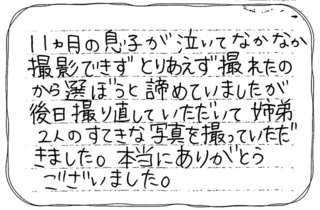 11ヵ月の息子が泣いてなかなか
撮影できず とりあえず撮れたの
から選ぼうと諦めていましたが
後日撮り直していただいて 姉弟
2人のすてきな写真を撮っていただ
きました。本当にありがとう
ございました。